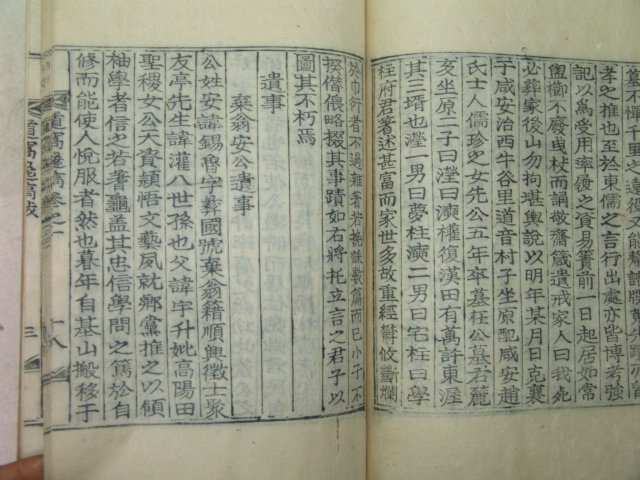 孝之推也至於東儒之言行出處亦皆博考強
記以爲受用率履之資易簀前一日起居如常
盥櫛不廢曳杖而誦敬齋箴遺戒家人曰我死
必葬家後山勿拘堪輿說以明年某月日克襄
于咸安治西牛谷里道音村子坐原配咸安趙
氏士人儒珍之女先公五年卒墓在公墓君麓
亥坐原二子曰瀅曰演權復漢田有萬許東渥
其三壻也瀅一男曰夢柱演二男曰宅柱曰學
柱府君著述甚富而家世多故重經鬱攸斷爛
於巾衍者不過雜著若挽誄數篇而已小子不
揆僭偎略掇其事蹟如右將托立言之君子以
圖其不朽焉
遺事
棄翁安公遺事
公姓安諱錫魯字彛國號棄翁籍順興徵士聚
友亭先生諱灌八世孫也父諱宇升妣高陽田
聖稷女公天資穎悟文藝夙就鄕黨推之以傾
袖學者信之若蓍龜盖其忠信學問之篤於自
修而能使人悅服者然也暮年自基山搬移于
道窩逸稿卷之一
十八
道窩逸稿跋
三